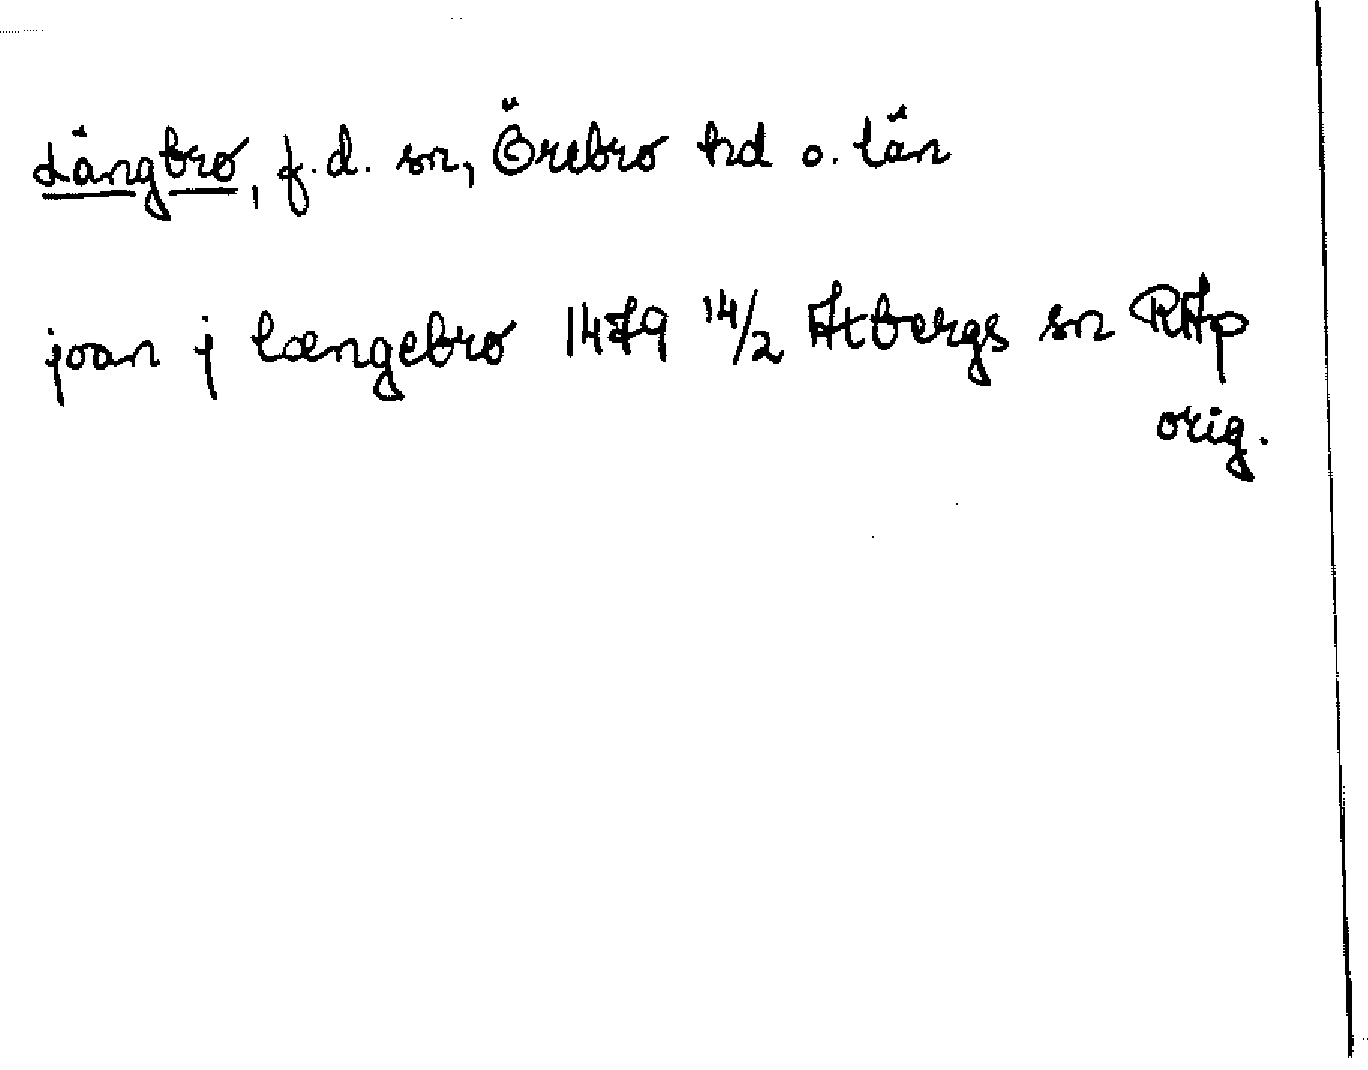 Längbro, f.d. sn, Örebro hd o. län
joan j længebro 1479 14/2 Axbergs sn RAp
orig.